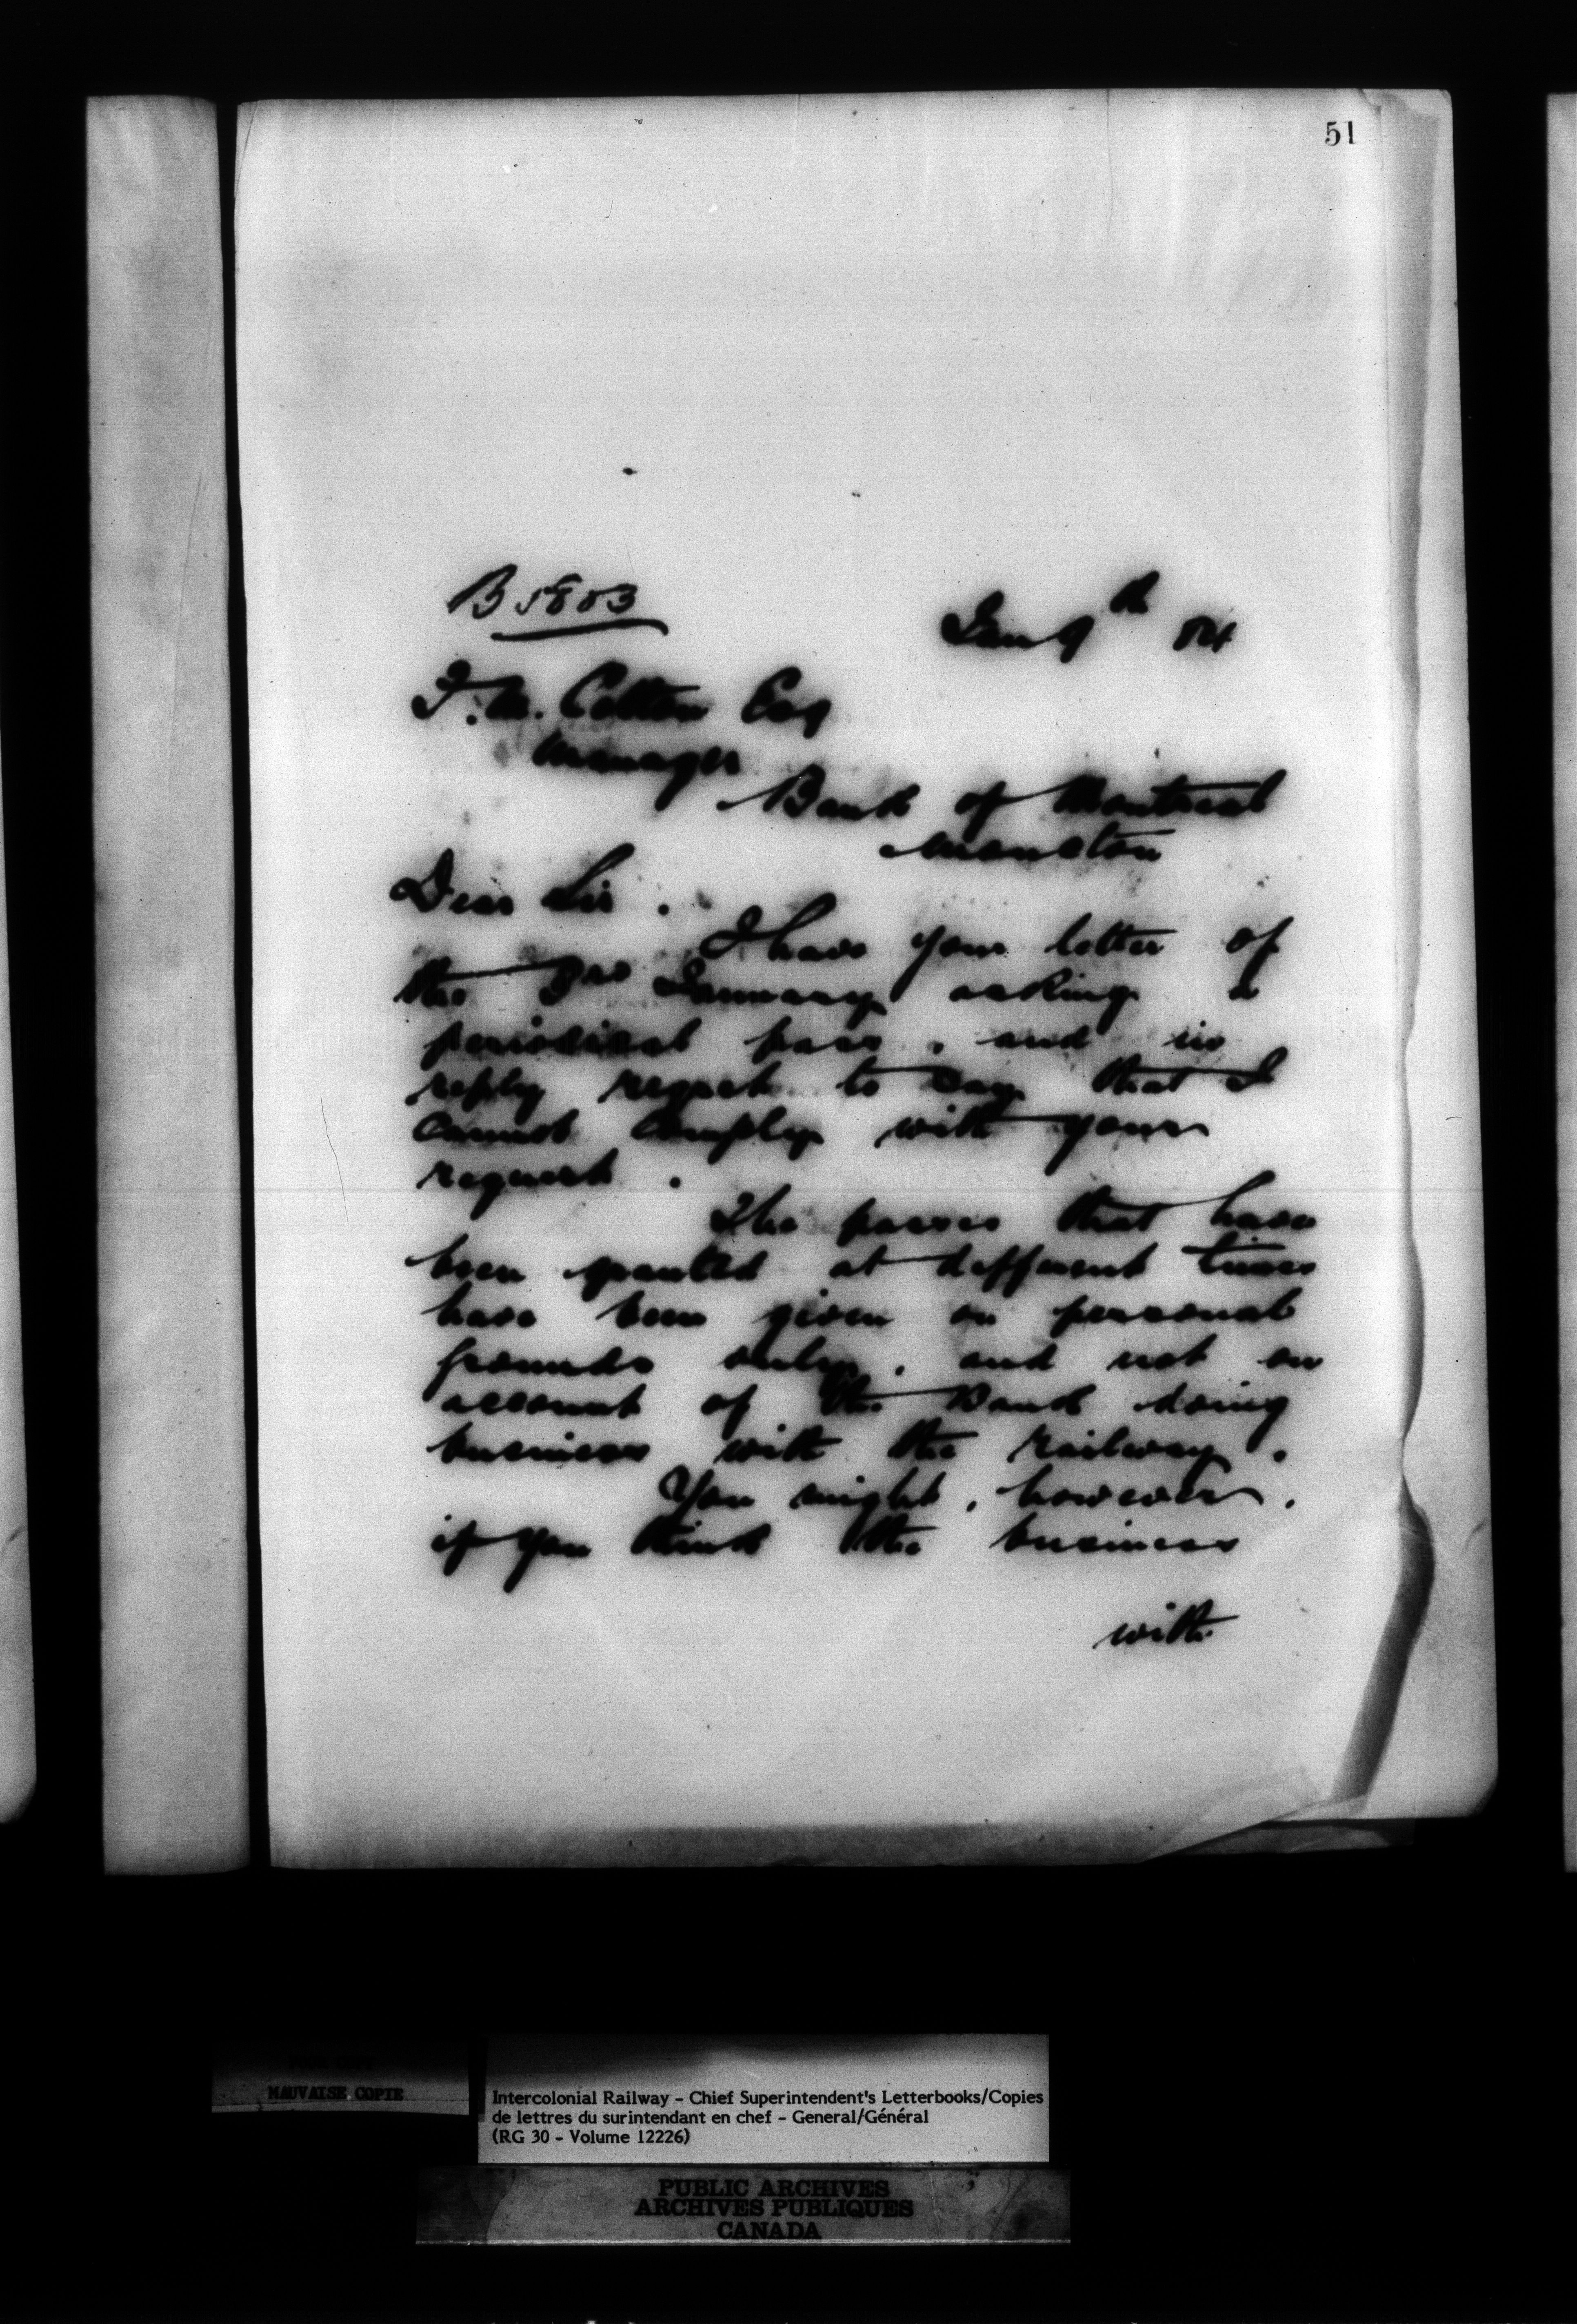 51
B 5803
Jan 9th 84
F. M. Cotton Esq
Manager
Bank of Montreal
Moncton
Dear Sir.
I have your letter of
the 3rd January asking a
periodical pass, and in
reply regret to say that I
cannot comply with your
request.
The passes that have
been granted at different times
have been given on personal
grounds only, and not on
account of the Bank doing
business with the railway.
You might, however,
if you think the business
with
MAUVAISE COPIE
Intercolonial Railway - Chief Superintendent's Letterbooks/Copies
de lettres du surintendant en chef - General/Général
(RG 30 - Volume 12226)
PUBLIC ARCHIVES
ARCHIVES PUBLIQUES
CANADA